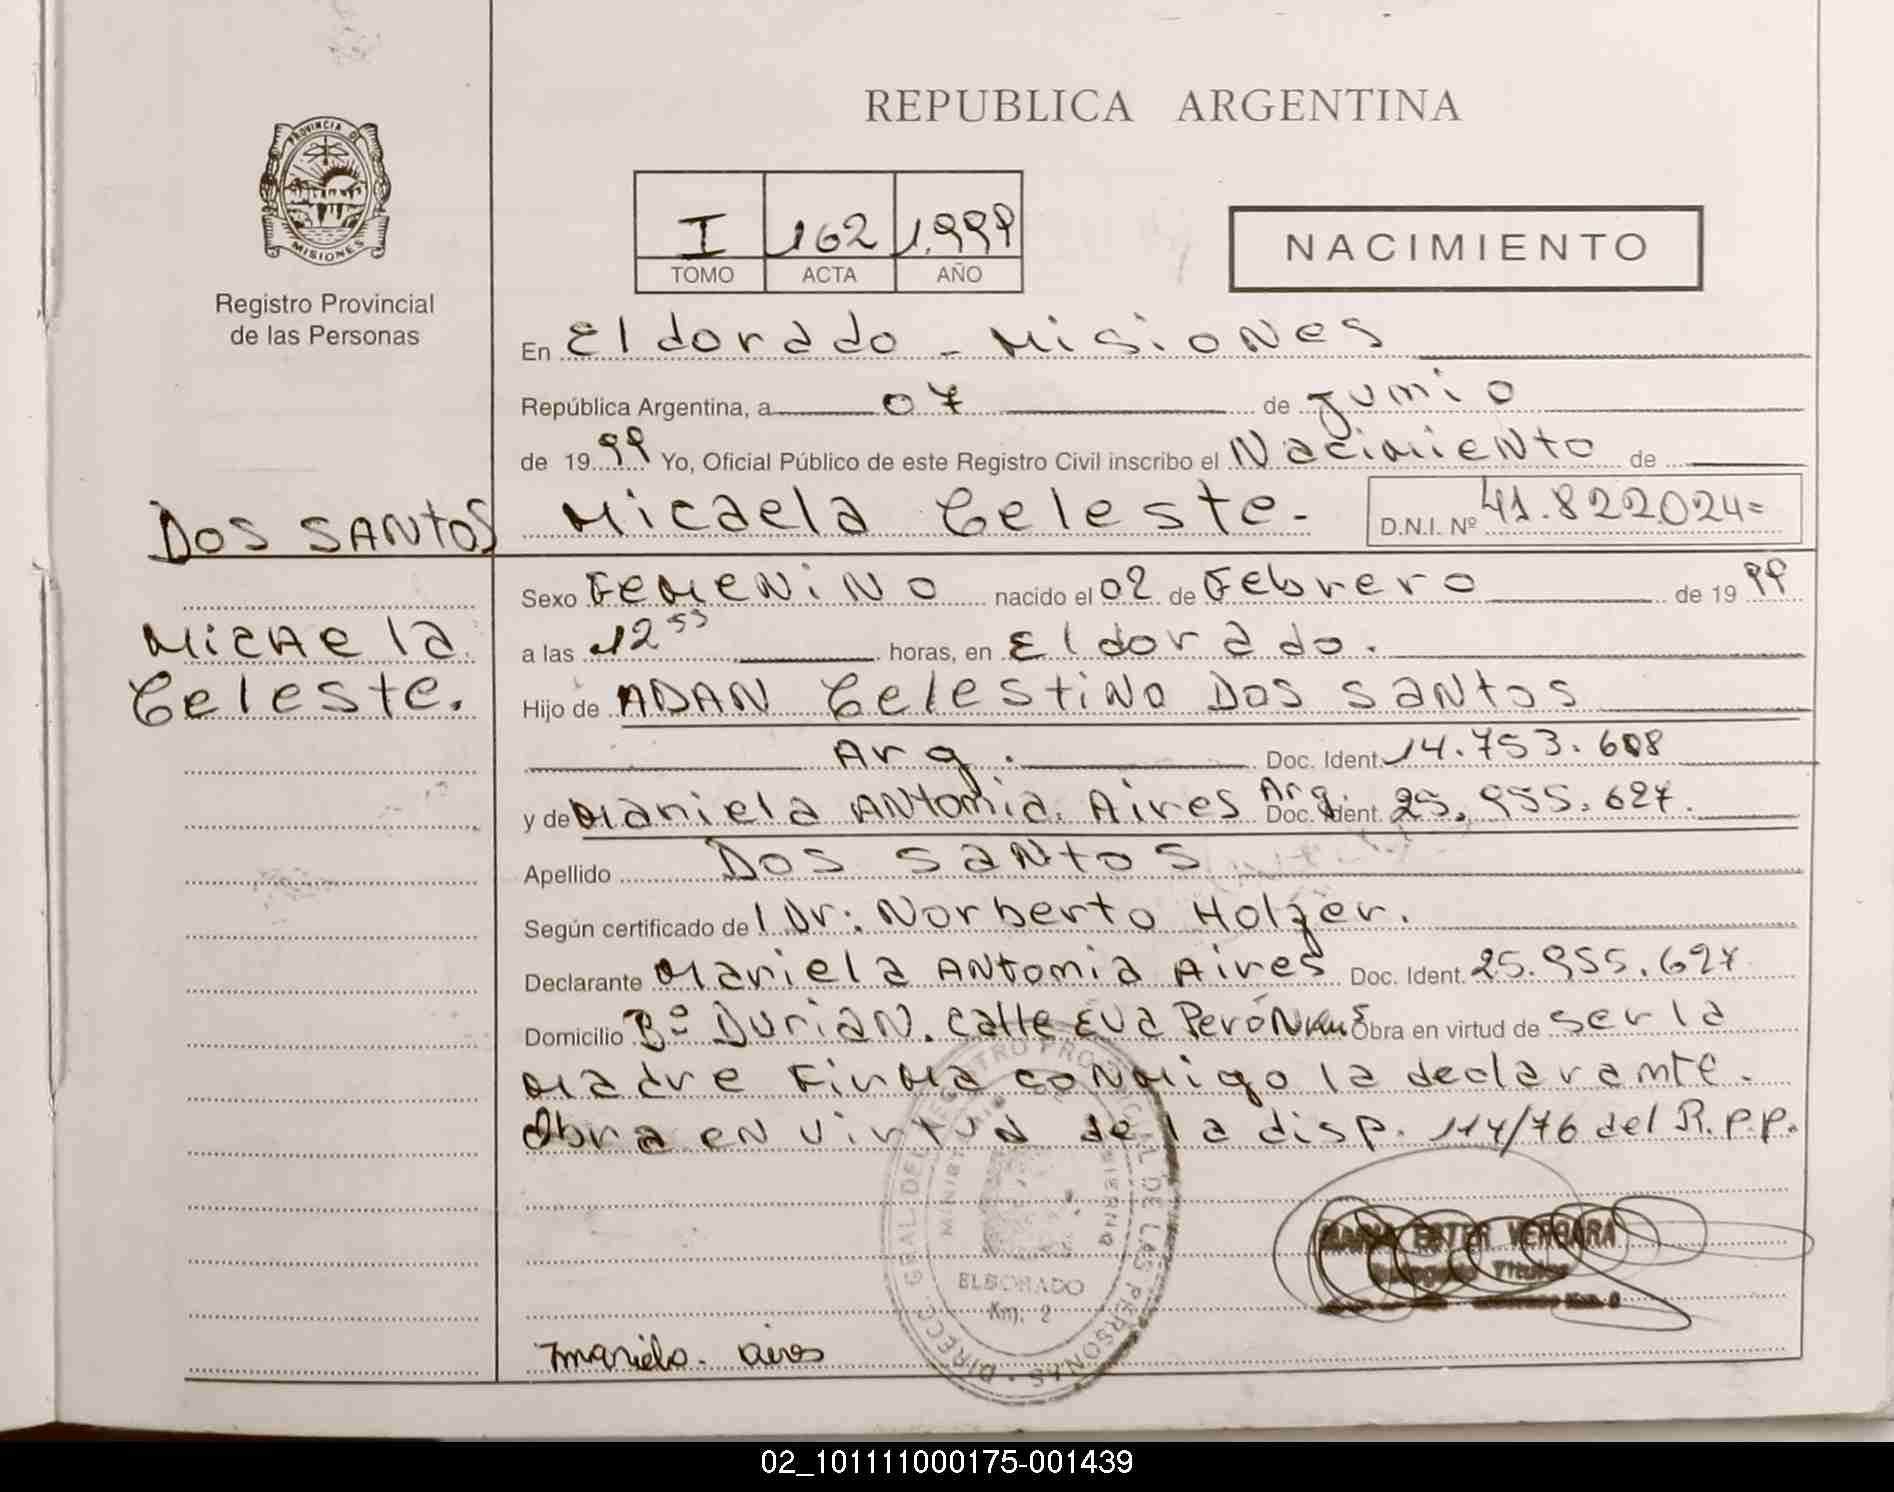 REPUBLICA ARGENTINA
PROVINCIA DE
MISIONES
Registro Provincial
de las Personas
I 162 1.999
TOMO ACTA AÑO
NACIMIENTO
En Eldorado - Misiones
República Argentina, a 07 de Junio
de 1999 Yo, Oficial Público de este Registro Civil inscribo el Nacimiento de
DOS SANTOS Micaela Celeste.- D.N.I. Nº 41.822.024=
Micaela
Celeste.
Sexo Femenino nacido el 02 de Febrero de 1999
a las 12 55 horas, en Eldorado.
Hijo de ADAN Celestino Dos Santos
Arg. Doc. Ident. 14.753.608
y de Mariela Antonia Aires Arg. Doc. Ident. 25.955.627.
Apellido Dos Santos
Según certificado del Dr: Norberto Holzer.
Declarante Mariela Antonia Aires Doc. Ident. 25.955.627
Domicilio Bº Durian. Calle Eva Perón Obra en virtud de ser la
Madre Firma conmigo la declarante.
Obra en virtud de la disp. 114/76 del R.p.p.
DIRECC. GRAL DEL REGISTRO PROVINCIAL DE LAS PERSONAS
ELDORADO
Km. 2
MARIA ESTER VERGARA
Mariela. aires
02_101111000175-001439